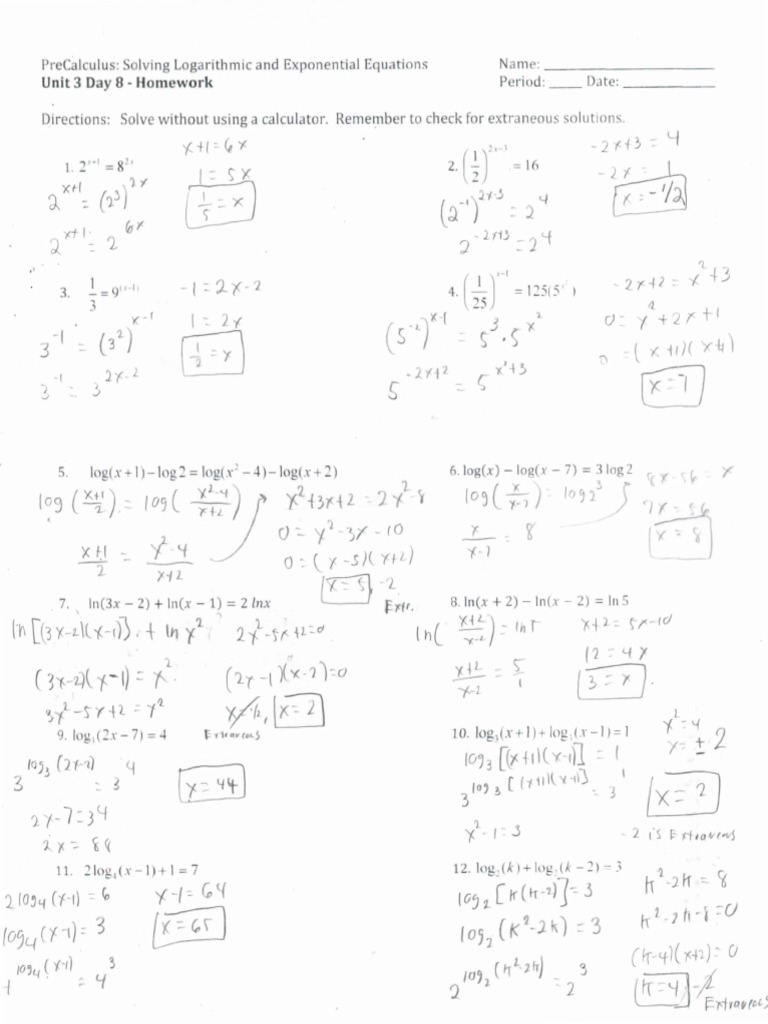 PreCalculus: Solving Logarithmic and Exponential Equations Name: ____________________
Unit 3 Day 8 - Homework Period: _____ Date: ____________
Directions: Solve without using a calculator. Remember to check for extraneous solutions.
1. 2^(x+1) = 8^(2x)
2^(x+1) = (2^3)^(2x)
2^(x+1) = 2^(6x)
x+1 = 6x
1 = 5x
1/5 = x
2. (1/2)^(2x-3) = 16
(2^-1)^(2x-3) = 2^4
2^(-2x+3) = 2^4
-2x+3 = 4
-2x = 1
x = -1/2
3. 1/3 = 9^(x-1)
3^-1 = (3^2)^(x-1)
3^-1 = 3^(2x-2)
-1 = 2x-2
1 = 2x
1/2 = x
4. (1/25)^(x-1) = 125(5^x²)
(5^-2)^(x-1) = 5^3 · 5^x²
5^(-2x+2) = 5^(x²+3)
-2x+2 = x²+3
0 = x²+2x+1
0 = (x+1)(x+1)
5. log(x+1) – log 2 = log(x² – 4) – log(x + 2)
log((x+1)/2) = log((x²-4)/(x+2))
(x+1)/2 = (x²-4)/(x+2)
x²+3x+2 = 2x²-8
0 = x²-3x-10
0 = (x-5)(x+2)
x = 5, -2
Extr.
6. log(x) – log(x – 7) = 3 log 2
log(x/(x-7)) = log 2^3
x/(x-7) = 8
8x-56 = x
7x = 56
x = 8
7. ln(3x – 2) + ln(x – 1) = 2 lnx
ln[(3x-2)(x-1)] = ln x²
(3x-2)(x-1) = x²
3x²-5x+2 = x²
2x²-5x+2=0
(2x-1)(x-2)=0
x=1/2, x=2
Extraneous
8. ln(x + 2) – ln(x – 2) = ln 5
ln((x+2)/(x-2)) = ln 5
(x+2)/(x-2) = 5/1
x+2 = 5x-10
12 = 4x
3 = x
9. log₃(2x – 7) = 4
3^(log₃(2x-7)) = 3^4
2x-7=3^4
2x = 88
x = 44
10. log₃(x + 1) + log₃(x – 1) = 1
log₃[(x+1)(x-1)] = 1
3^(log₃[(x+1)(x-1)]) = 3^1
x²-1=3
x²=4
x= ± 2
x = 2
-2 is Extraneous
11. 2log₄(x – 1) + 1 = 7
2log₄(x-1) = 6
log₄(x-1) = 3
4^(log₄(x-1)) = 4^3
x-1 = 64
x = 65
12. log₂(k) + log₂(k – 2) = 3
log₂[k(k-2)] = 3
log₂(k²-2k) = 3
2^(log₂(k²-2k)) = 2^3
k²-2k = 8
k²-2k-8=0
(k-4)(x+2)=0
k=4, -2
Extraneous